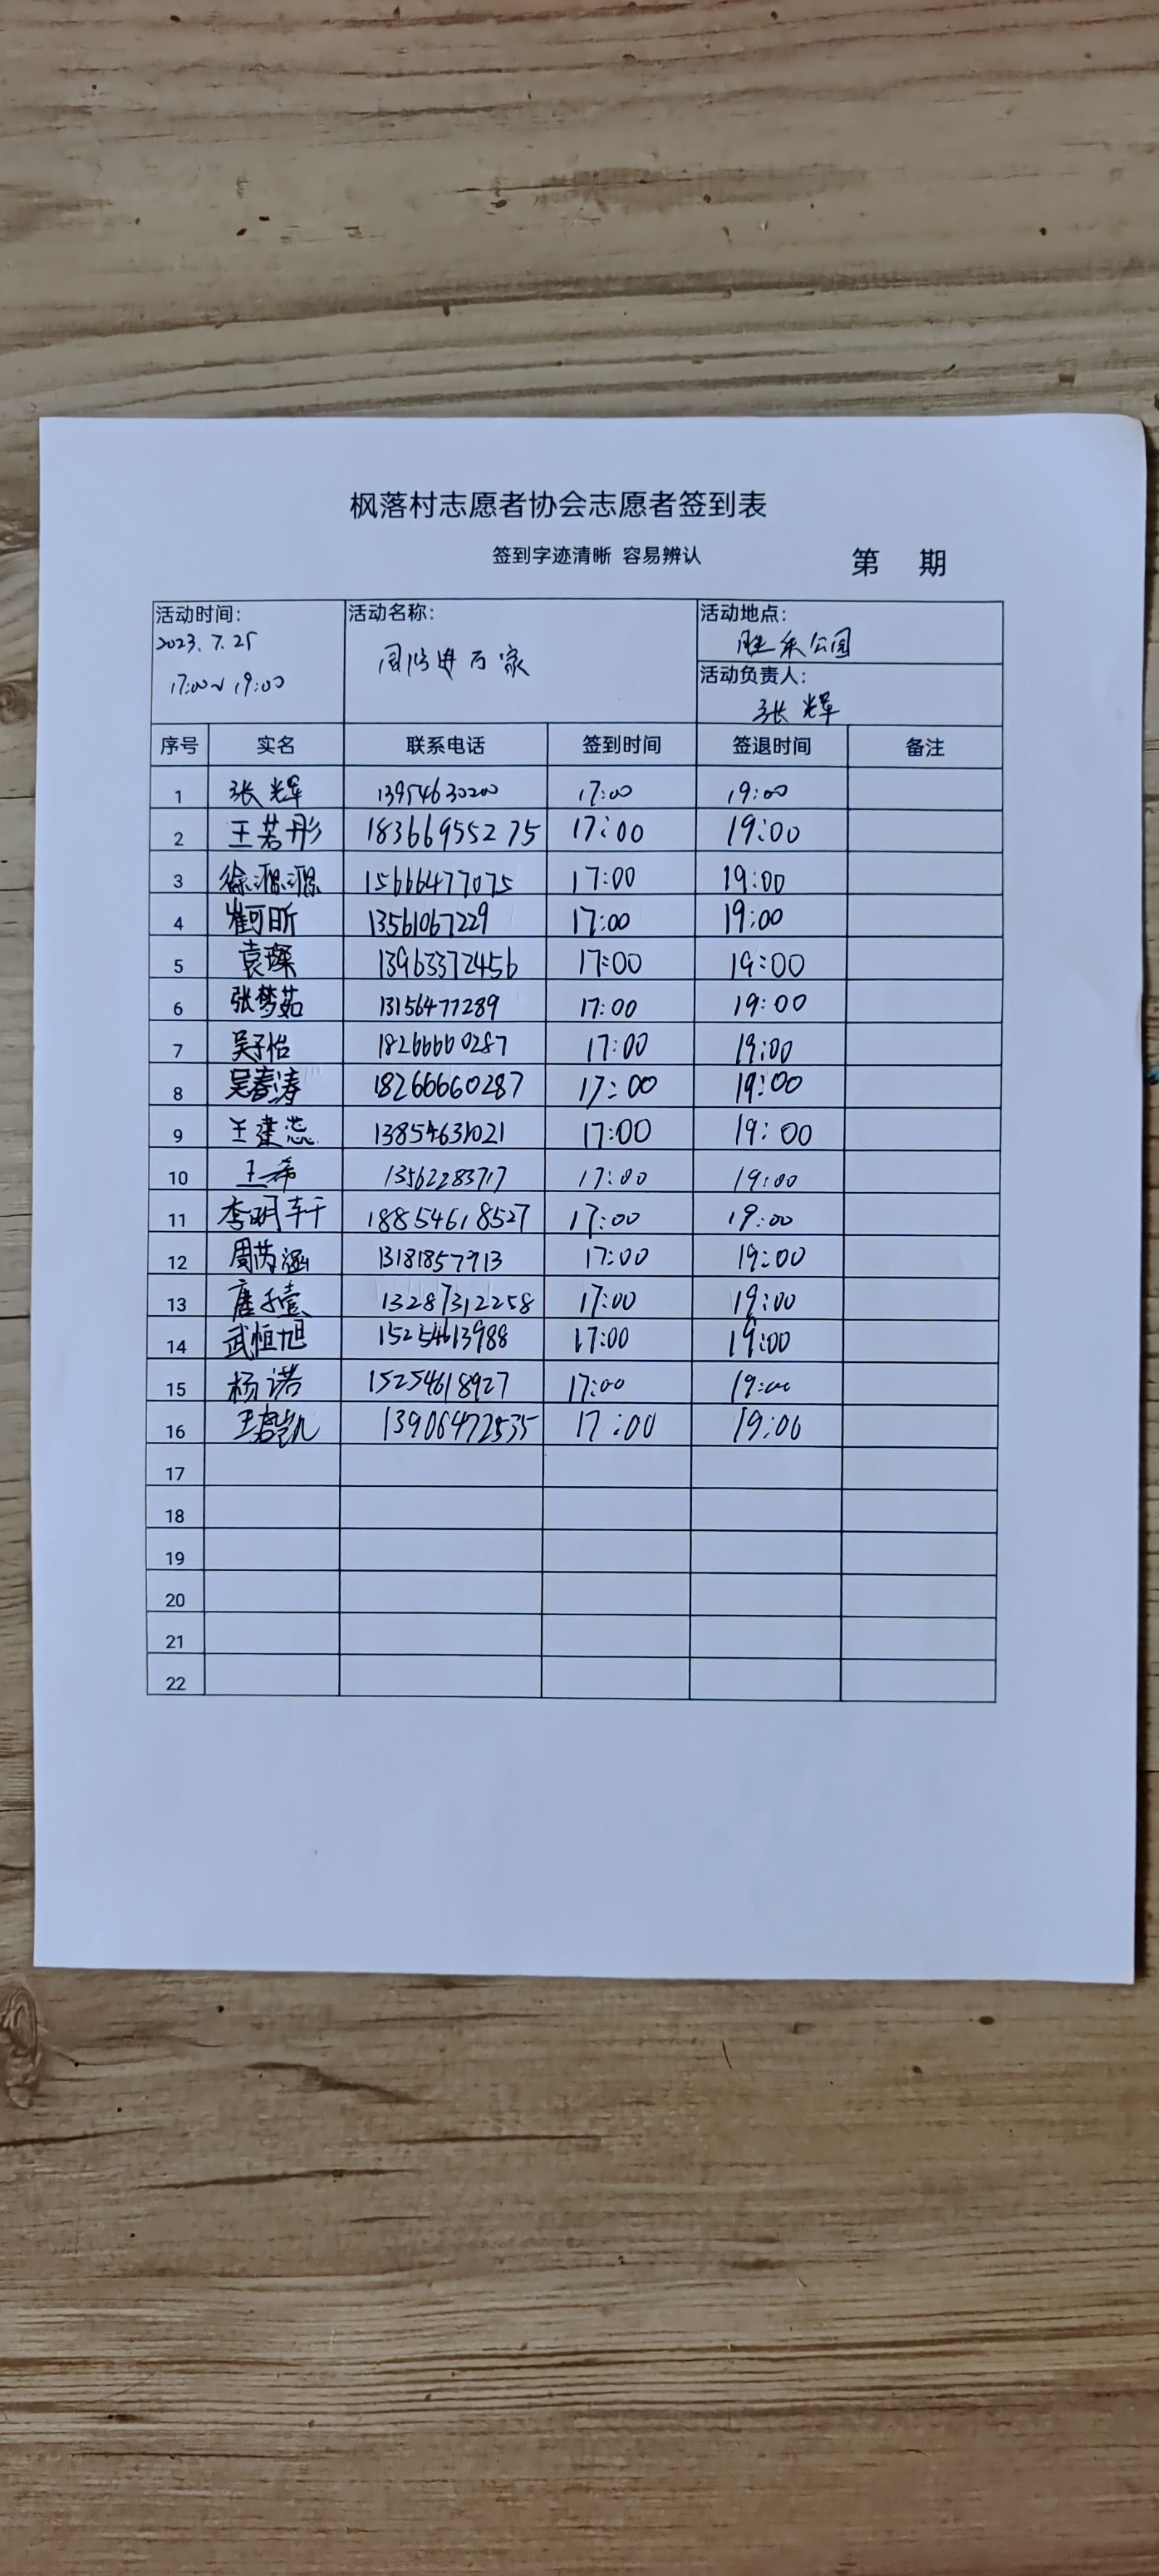 枫落村志愿者协会志愿者签到表
签到字迹清晰 容易辨认
第 期
活动时间:
2023.7.25
17:00~19:00
活动名称:
进万家
活动地点:
胜采公园
活动负责人:
张辉
序号 实名 联系电话 签到时间 签退时间 备注
1 张辉 13954630200 17:00 19:00
2 王若彤 18366955275 17:00 19:00
3 徐源源 15666477075 17:00 19:00
4 崔可昕 13561067229 17:00 19:00
5 袁璨 13963372456 17:00 19:00
6 张梦茹 13156477289 17:00 19:00
7 吴子怡 18266660287 17:00 19:00
8 吴春涛 18266660287 17:00 19:00
9 王建蕊 13854631021 17:00 19:00
10 王希 13562283717 17:00 19:00
11 李明轩 18854618527 17:00 19:00
12 周芮涵 13181857913 17:00 19:00
13 唐子壹 13287312258 17:00 19:00
14 武恒旭 15254613988 17:00 19:00
15 杨诺 15254618927 17:00 19:00
16 王君凯 13906472535 17:00 19:00
17
18
19
20
21
22